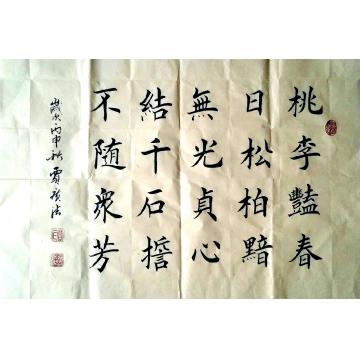 桃李豔春
日松柏黯
無光貞心
結千石誓
不随衆芳
歲次丙申秋